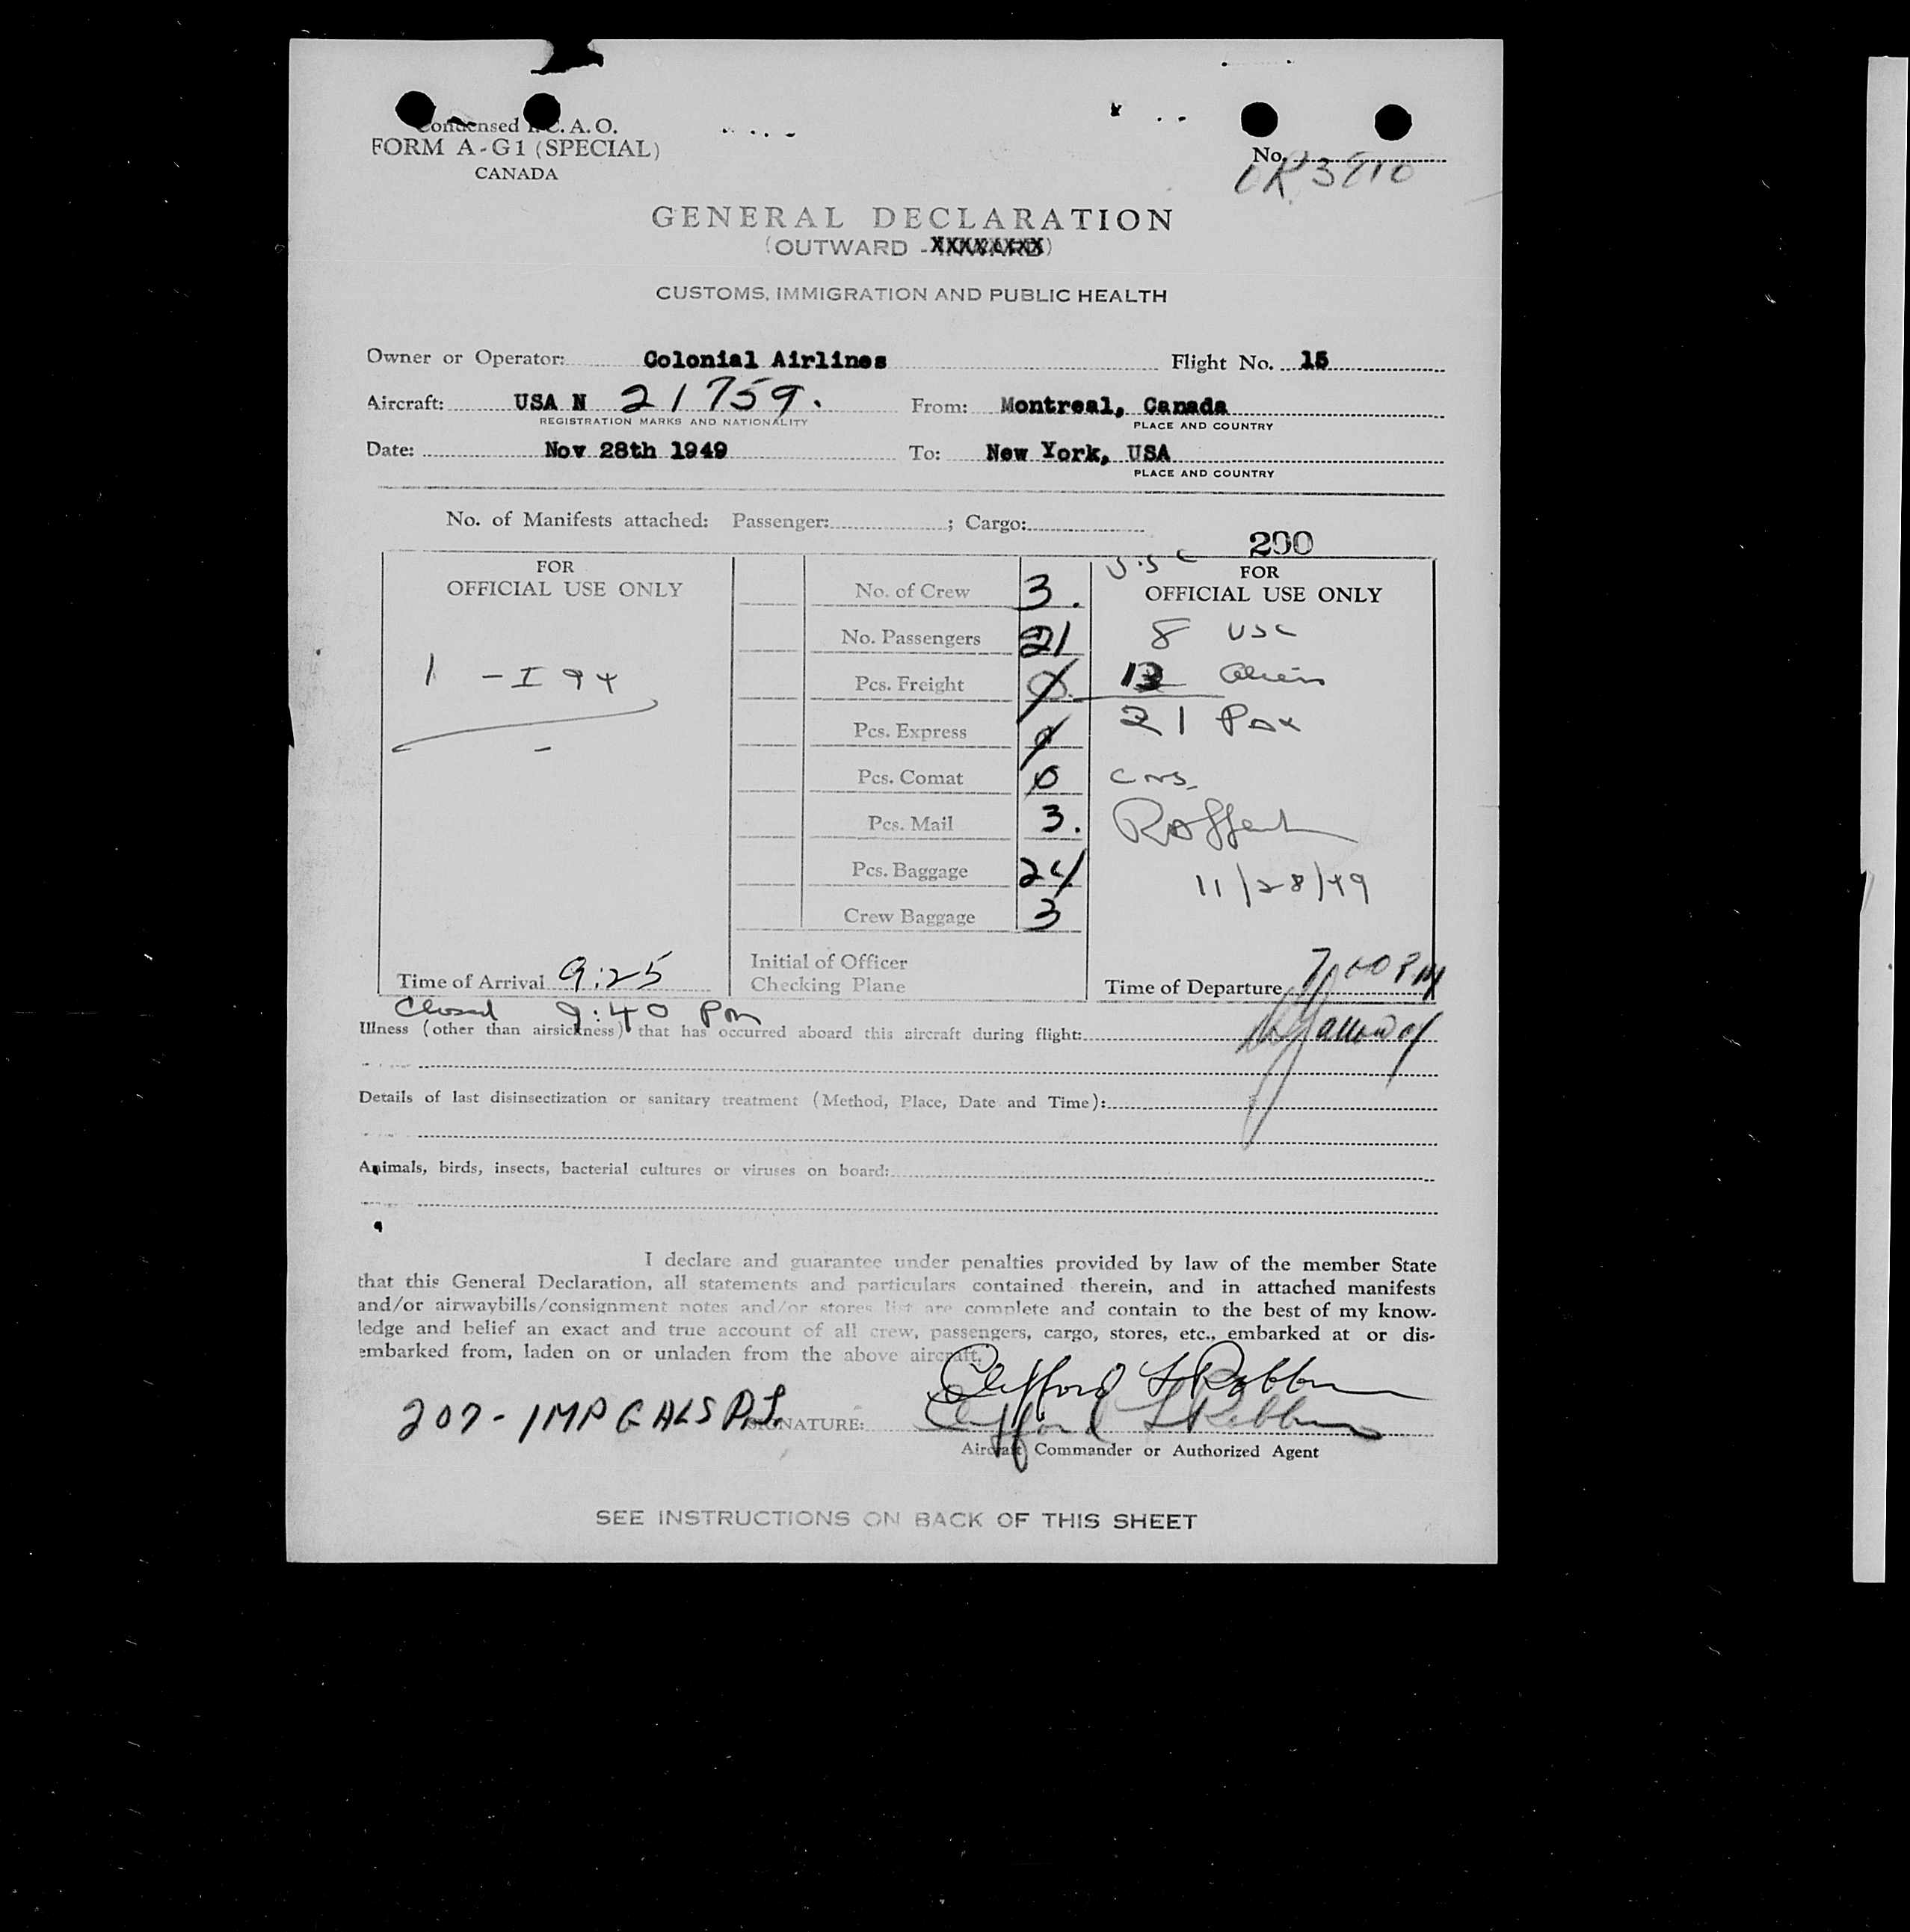 Condensed I.C.A.O.
FORM A-G1 (SPECIAL)
CANADA
No.
GENERAL DECLARATION
(OUTWARD - XXXXXXXX)
CUSTOMS, IMMIGRATION AND PUBLIC HEALTH
Owner or Operator: Colonial Airlines Flight No. 15
Aircraft: USA N 21759. From: Montreal, Canada
REGISTRATION MARKS AND NATIONALITY PLACE AND COUNTRY
Date: Nov 28th 1949 To: New York, USA
PLACE AND COUNTRY
No. of Manifests attached: Passenger: ; Cargo:
200
FOR
OFFICIAL USE ONLY
1 - I 94
Time of Arrival 9:25
Closed 9:40 Pm
No. of Crew 3.
No. Passengers 21
Pcs. Freight 0
Pcs. Express 0
Pcs. Comat 0
Pcs. Mail 3.
Pcs. Baggage 24
Crew Baggage 3
Initial of Officer
Checking Plane
FOR
OFFICIAL USE ONLY
8 USC
13 Alien
21 Pax
11/28/49
Time of Departure 7:00 PM
Illness (other than airsickness) that has occurred aboard this aircraft during flight:
Details of last disinsectization or sanitary treatment (Method, Place, Date and Time):
Animals, birds, insects, bacterial cultures or viruses on board:
I declare and guarantee under penalties provided by law of the member State
that this General Declaration, all statements and particulars contained therein, and in attached manifests
and/or airwaybills/consignment notes and/or stores list are complete and contain to the best of my know-
ledge and belief an exact and true account of all crew, passengers, cargo, stores, etc., embarked at or dis-
embarked from, laden on or unladen from the above aircraft.
Clifford L Robbins
207 - IMP GALS
SIGNATURE: Clifford L Robbins
Aircraft Commander or Authorized Agent
SEE INSTRUCTIONS ON BACK OF THIS SHEET